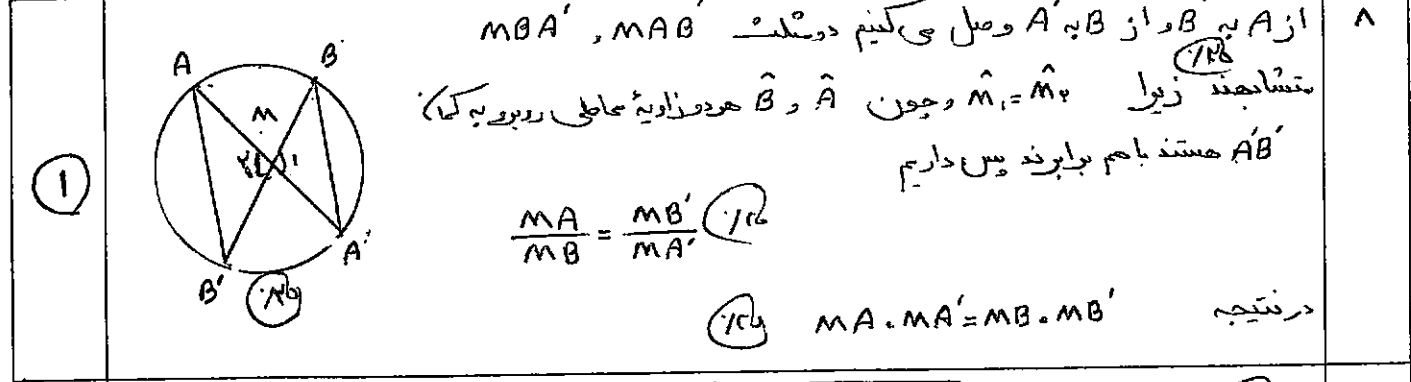 ۸
از A به B′ و از B به A′ وصل می‌کنیم دو مثلث MAB′ و MBA′
متشابهند زیرا M̂₁ = M̂₂ و چون Â و B̂ هر دو زاویهٔ محاطی روبرو به کمان
۰/۲۵
A′B′ هستند با هم برابرند پس داریم
MA/MB = MB′/MA′ ۰/۲۵
در نتیجه MA . MA′ = MB . MB′ ۰/۲۵
A B
M
۲ ۱
A′
B′ ۰/۲۵
۱